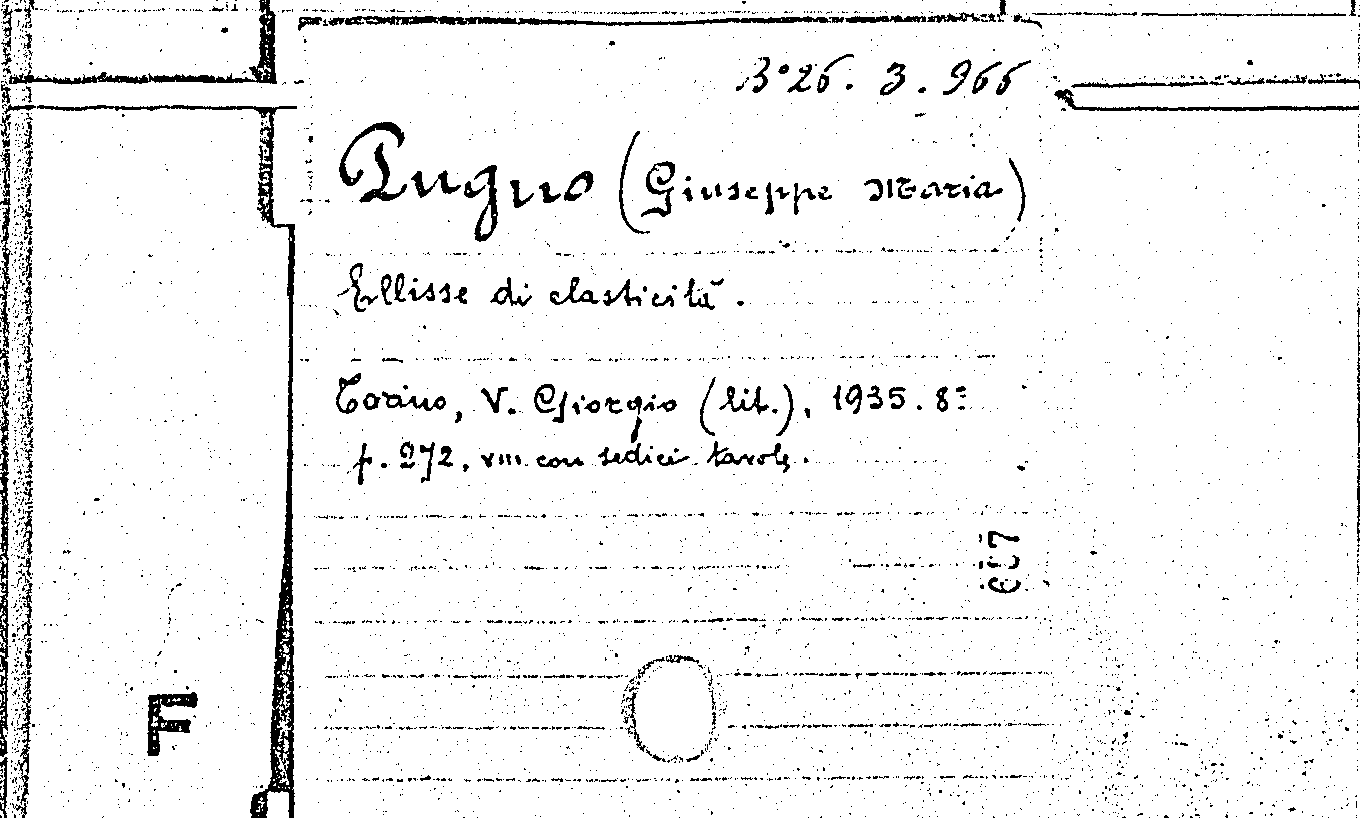 B° 26. 3. 966
Pugno (Giuseppe Maria)
Ellisse di elasticità.
Torino, V. Giorgio (lit.), 1935. 8º
p. 272, VIII con sedici tavole.
F